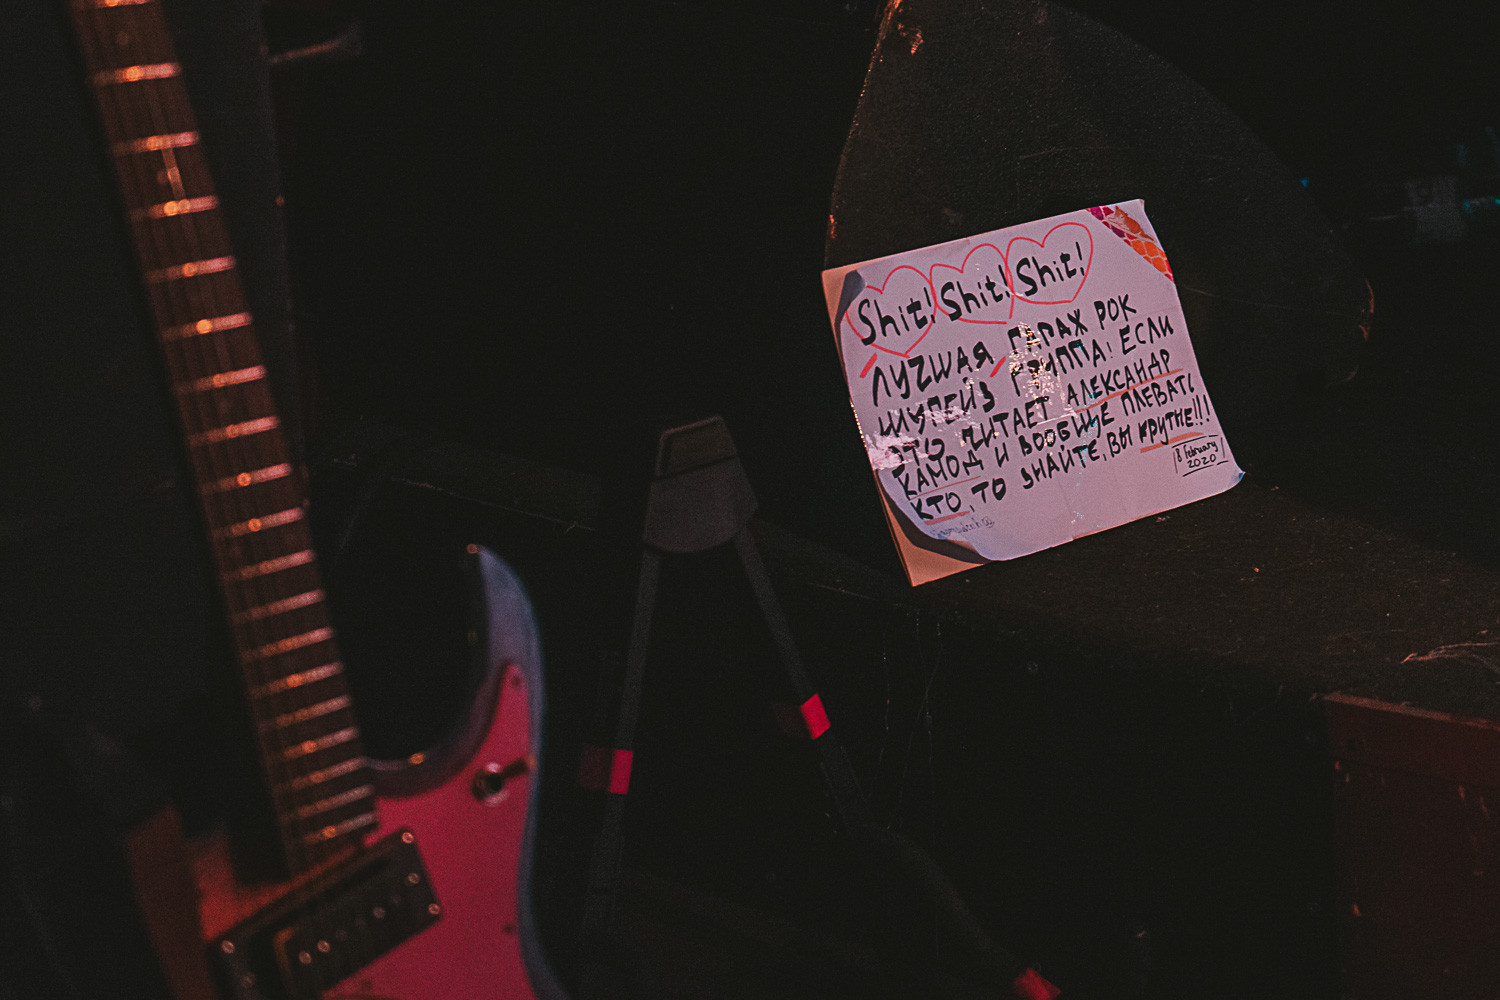 Shit! Shit! Shit!
ЛУЧШАЯ ГАРАЖ РОК
ШУГЕЙЗ ГРУППА! ЕСЛИ
ЭТО ЧИТАЕТ АЛЕКСАНДР
КАМОД И ВООБЩЕ ПЛЕВАТЬ
КТО, ТО ЗНАЙТЕ, ВЫ КРУТЫЕ!!!
8 february
2020